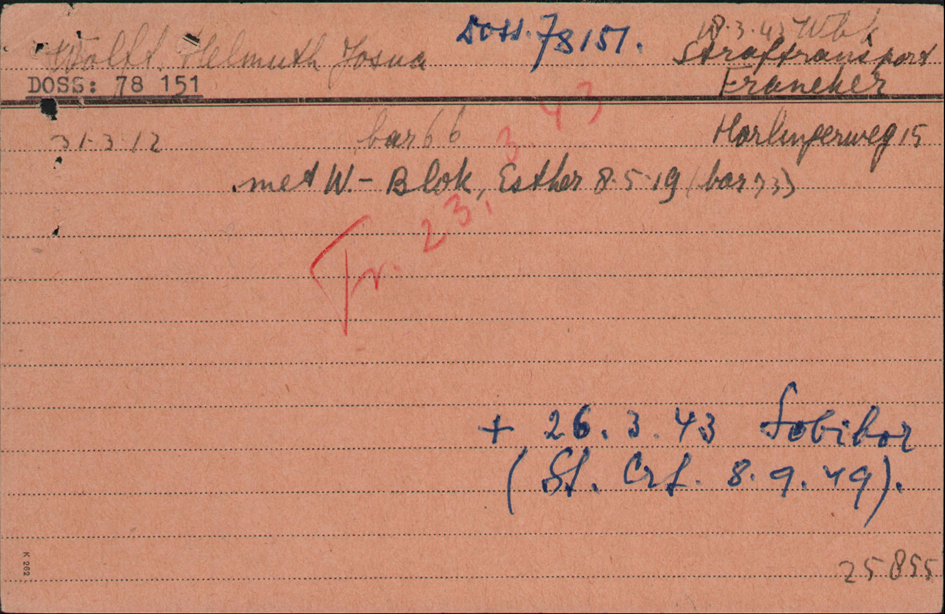 Wolff, Helmuth Josua
Doss. 78151.
18.3.43 Wbk
Straftransport
Franeker
DOSS: 78 151
31-3-12
bar 66
Harlingerweg 15
met W.- Blok, Esther 8-5-19 (bar 73)
Fr. 23, 3.43
+ 26.3.43 Sobibor
(St. Crt. 8.9.49).
K 262
25855